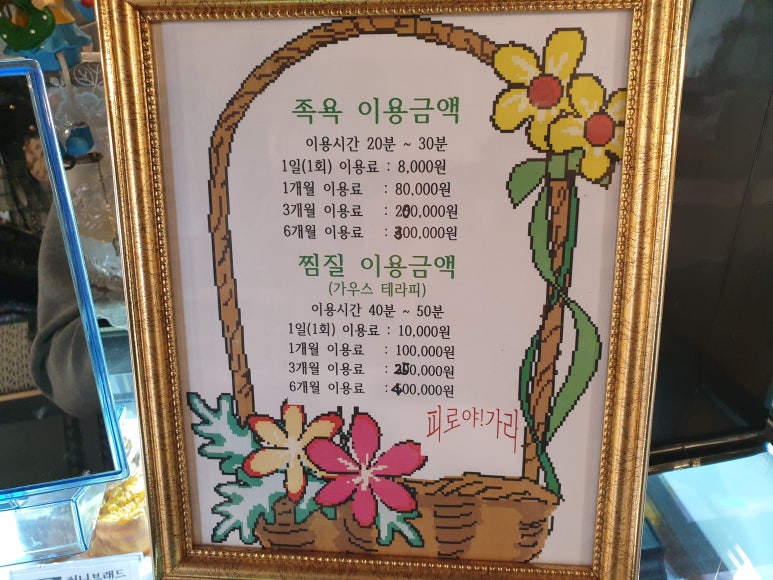 족욕 이용금액
이용시간 20분 ~ 30분
1일(1회) 이용료 : 8,000원
1개월 이용료 : 80,000원
3개월 이용료 : 200,000원
6개월 이용료 : 300,000원
찜질 이용금액
(가우스 테라피)
이용시간 40분 ~ 50분
1일(1회) 이용료 : 10,000원
1개월 이용료 : 100,000원
3개월 이용료 : 250,000원
6개월 이용료 : 400,000원
피로야!가라
허니브래드